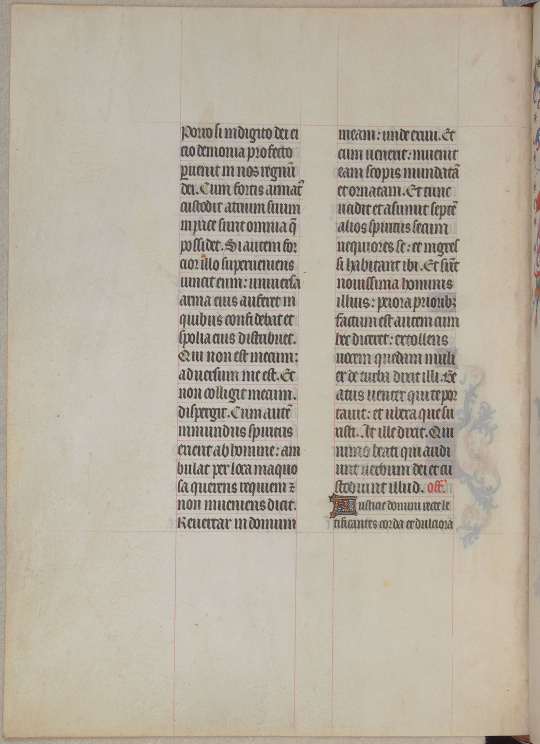 Porro si in digito dei ei
cio demonia profecto
puenit in nos regnū
dei. Cum fortis armat᷑
custodit atrium suum
in pace sunt omnia q̄
possidet. Si autem for
cior illo superueniens
uincit eum: uniuersa
arma eius auferet in
quibus confidebat et
spolia eius distribuet.
Qui non est mecum:
aduersum me est. Et
non colligit mecum.
dispergit. Cum autē
inmundus spiritus
exierit ab homine: am
bulat per loca inaquo
sa querens requiem ⁊
non inueniens dicit.
Reuertar in domum
meam: unde exiui. Et
cum uenerit: inuenit
eam scopis mundatā
et ornatam. Et tunc
uadit et asumit septē
alios spiritus secum
nequiores se: et ingres
si habitant ibi. Et sūt
nouissima hominis
illius: peiora priorib⁊
factum est autem cum
hec diceret: extollens
uocem quedam muli
er de turba dixit illi. Be
atus uenter qui te por
tauit: et ubera que su
xisti. At ille dixit. Qui
nimo beati qui audi
unt uerbum dei et cu
stodiunt illud. off᷑
Iusticie domini recte le
tificantes corda et dulciora